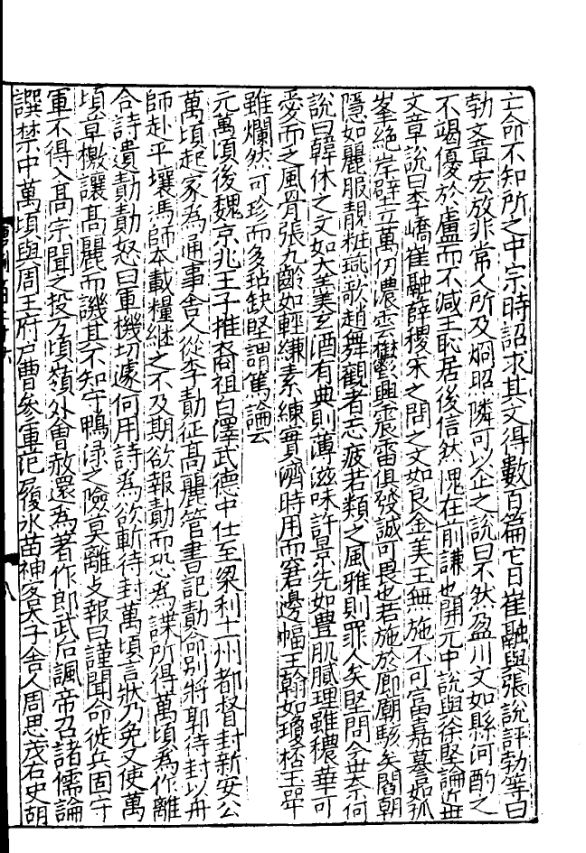 亡命不知所之中宗時詔求其文得數百篇它日崔融與張說評勃等曰
勃文章宏放非常人所及炯照隣可以企之說曰不然盈川文如縣河酌之
不竭優於盧而不减王恥居後信然愧在前謙也開元中說與徐堅論近世
文章說曰李嶠崔融薛稷宋之問之文如良金美玉無施不可富嘉謩如孤
峯絶岸壁立萬仞濃雲鬱興震雷俱發誠可畏也若施於廊廟駭矣閻朝
隱如麗服靚粧燕歌趙舞觀者忘疲若類之風雅則罪人矣堅問今世奈何
說曰韓休之文如大羹玄酒有典則薄滋味許景先如豊肌膩理雖穠華可
愛而乏風骨張九齡如輕縑素練實濟時用而窘邊幅王翰如瓊桮玉斝
雖爛然可珍而多玷缺堅謂篤論云
元萬頃後魏京兆王子推裔祖白澤武德中仕至梁利十一州都督封新安公
萬頃起家為通事舍人從李勣征髙麗管書記勣命別將郭待封以舟
師赴平壤馮師本載糧繼之不及期欲報勣而恐為諜所得萬頃為作離
合詩遺勣勣怒曰軍機切遽何用詩為欲斬待封萬頃言狀乃免又使萬
頃草檄讓髙麗而譏其不知守鴨淥之險莫離支報曰謹聞命徙兵固守
軍不得入髙宗聞之投万頃嶺外會赦還為著作郎武后諷帝召諸儒論
譔禁中萬頃與周王府户曹參軍范履冰苗神客太子舍人周思茂右史胡
八